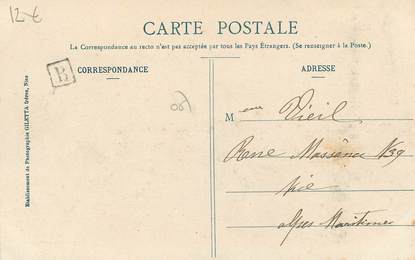 12€
CARTE POSTALE
La Correspondance au recto n'est pas acceptée par tous les Pays Étrangers. (Se renseigner à la Poste.)
CORRESPONDANCE
ADRESSE
B
Etablissement de Photographie GILETTA frères, Nice
Mme Vieil
Rue Masséna N 39
Nice
Alpes Maritimes